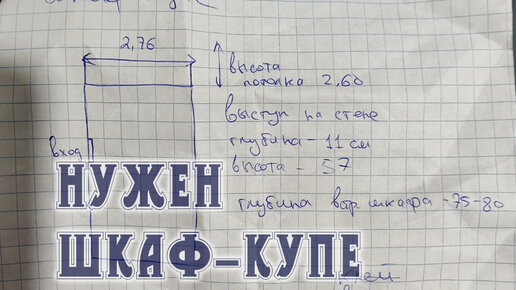 2,76
высота
потолка 2,60
выступ на стене
глубина - 11 см
высота - 57
вход
глубина шкафа - 75-80
НУЖЕН
ШКАФ-КУПЕ